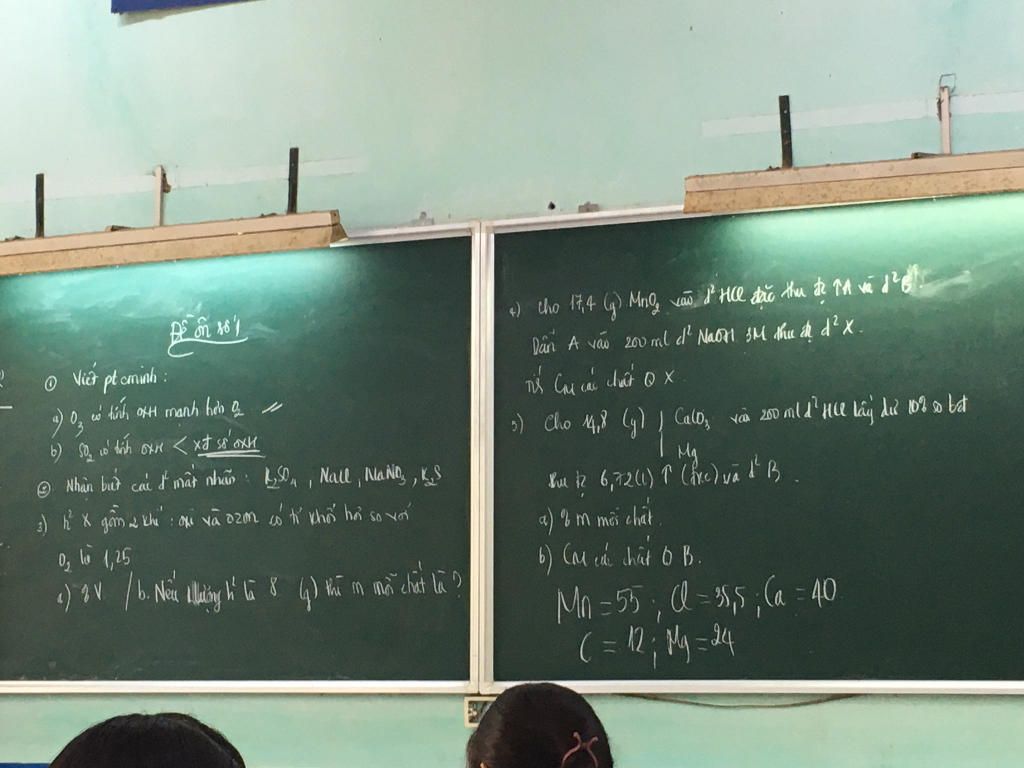 Đề ôn số 1
① Viết pt cminh :
a) O₃ có tính OXH mạnh hơn O₂
b) SO₂ có tính OXH <
② Nhận biết các d² mất nhãn : K₂SO₄ , NaCl , NaNO₃ , K₂S
3) h² X gồm 2 khí : oxi và ozon có tỉ khối hơi so với
O₂ là 1,25
a) %V / b. Nếu lượng h² là 8 (g) thì m mỗi chất là ?
4) Cho 17,4 (g) MnO₂ vào d² HCl đặc thu đc ↑A và d² B.
Dẫn A vào 200 ml d² NaOH 3M thu đc d² X.
CM các chất X
5) Cho 14,8 (g) CaCO₃ và 200 ml d² HCl lấy dư 10% so bđ
Mg
thu đc 6,72 (l) ↑ (đkc) và d² B .
a) % m mỗi chất.
b) CM các chất B.
Mn = 55 ; Cl = 35,5 ; Ca = 40
C = 12 ; Mg = 24